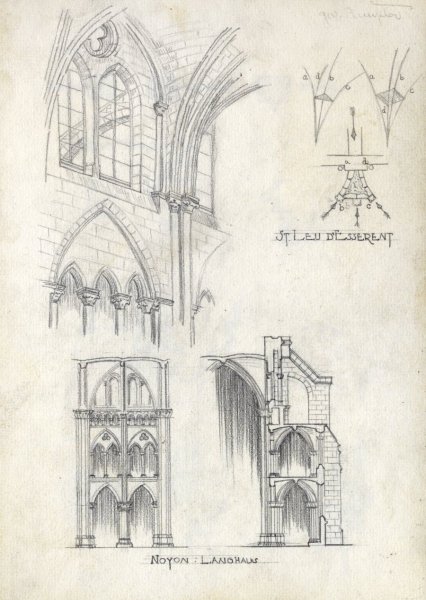 a d b
c
a b
c
d
a d
b c
ST. LEU D'ESSERENT
NOYON : LANGHAUS